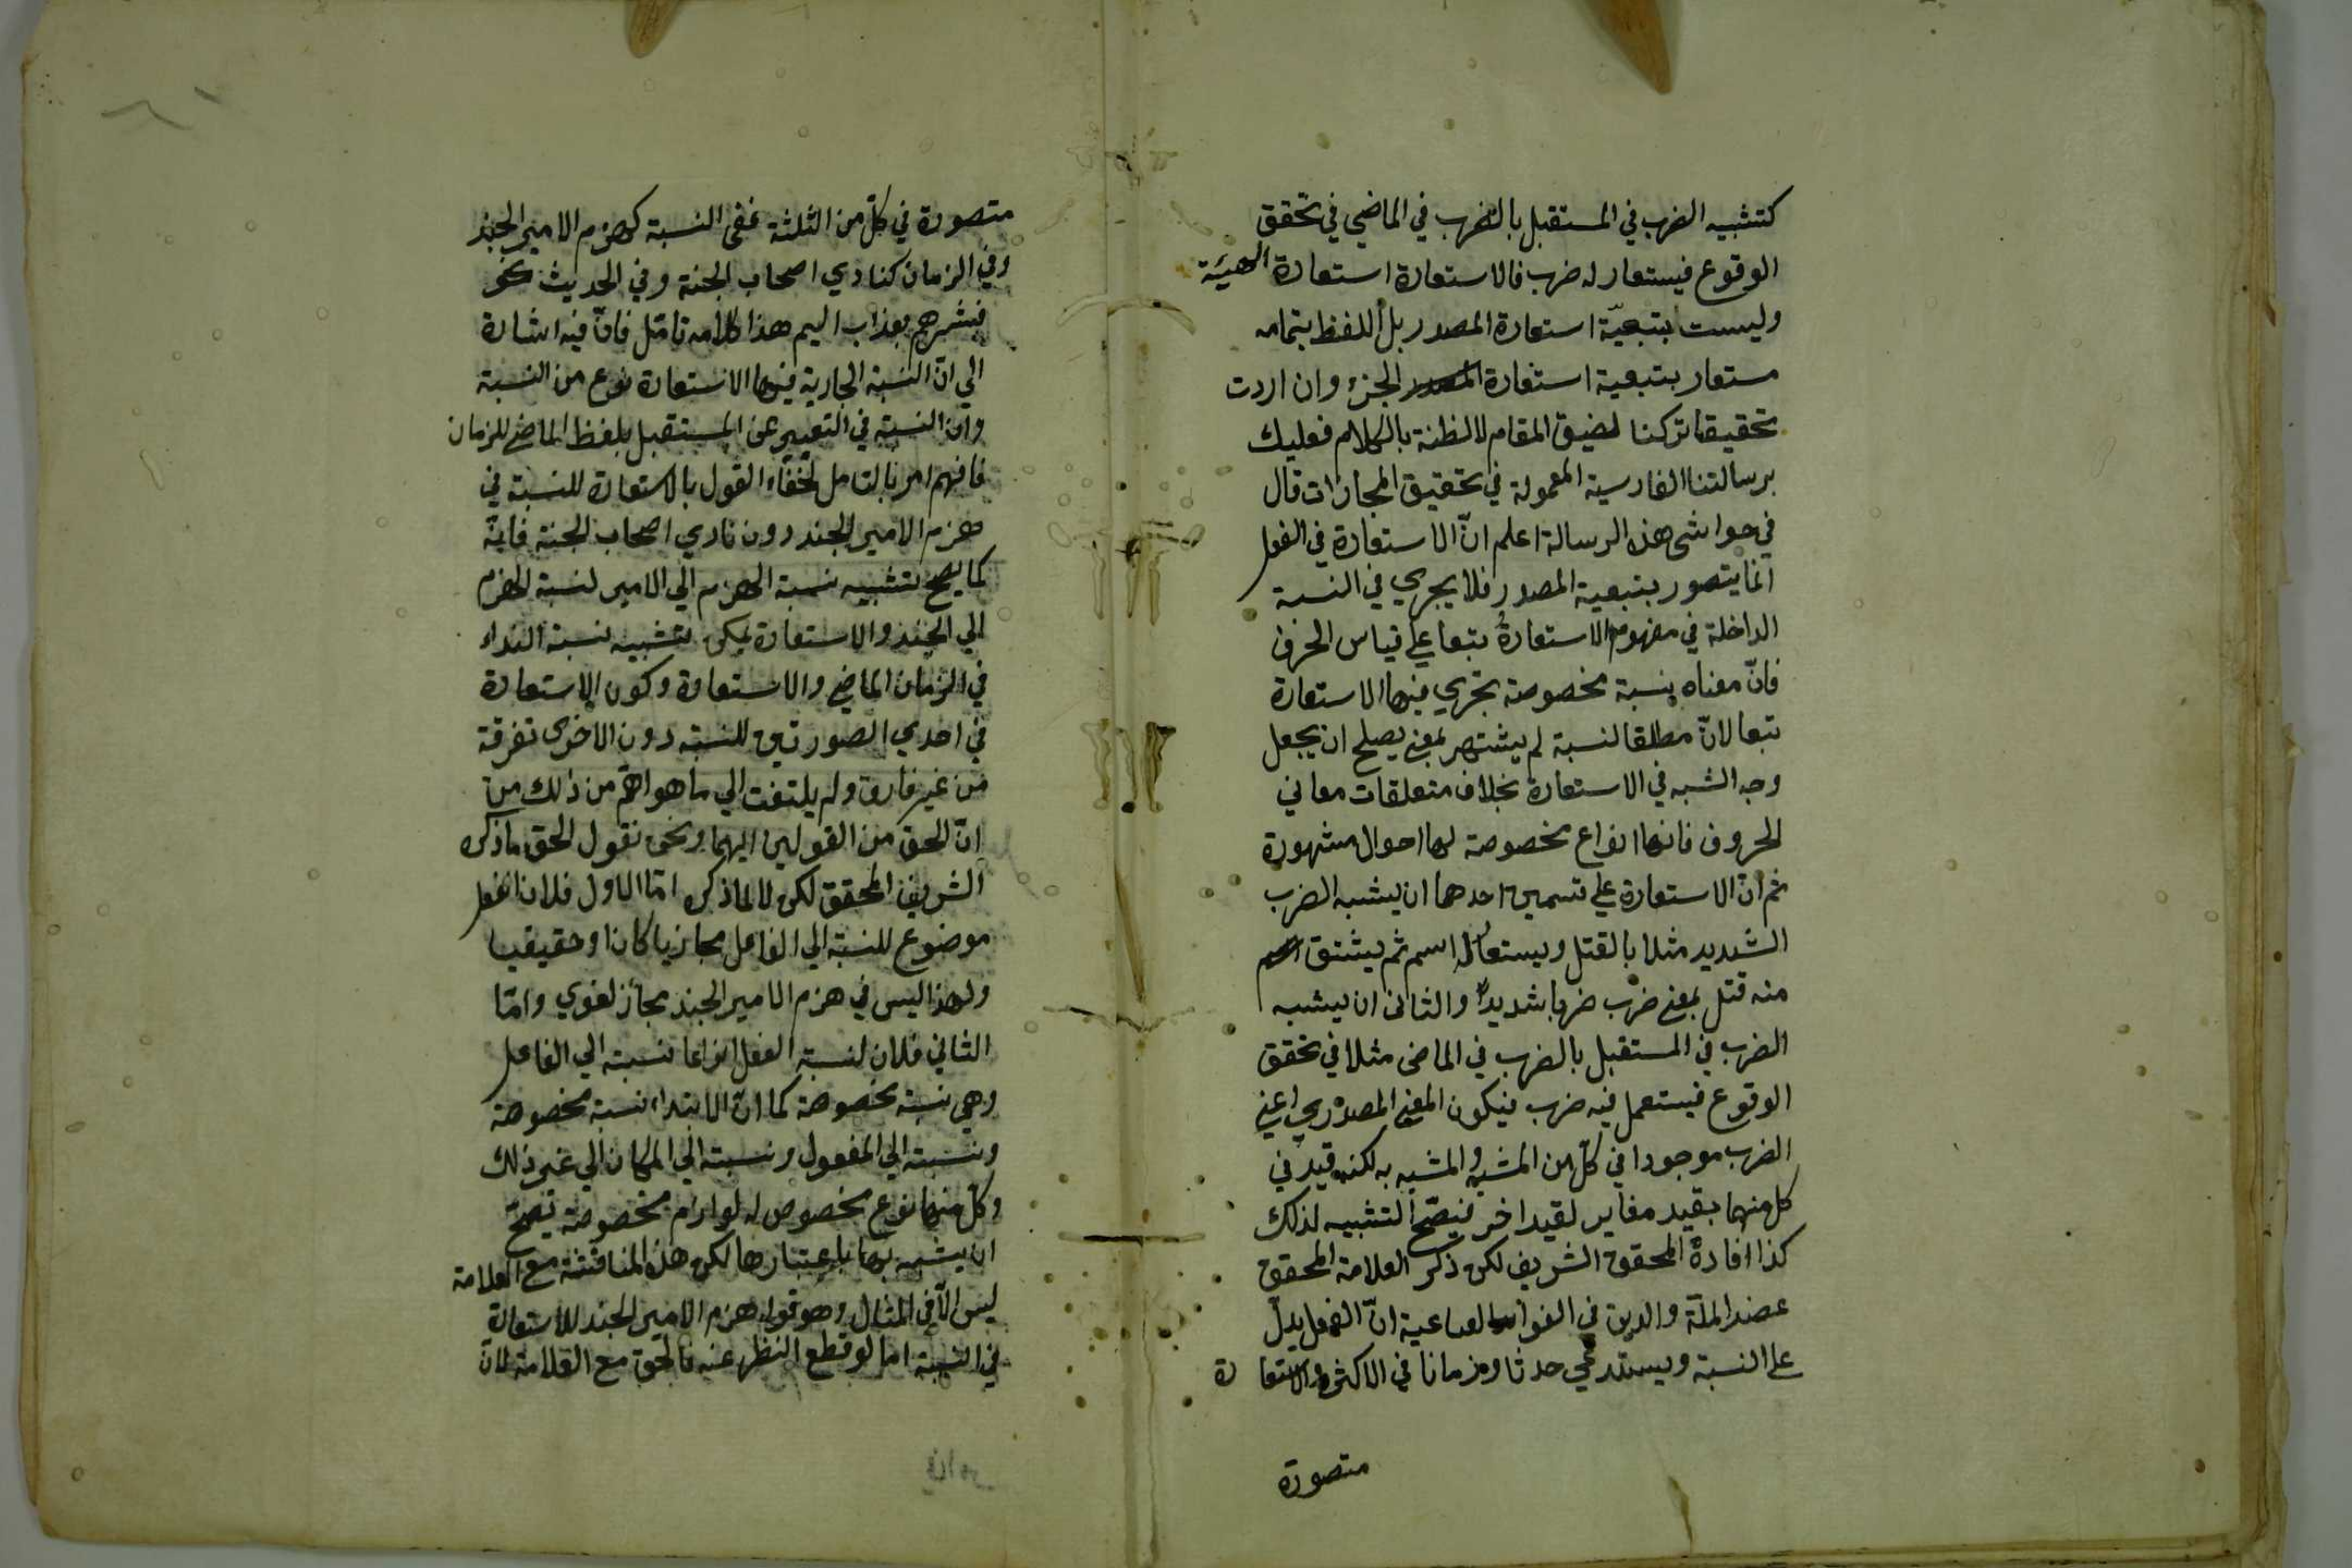 كتشبيه الضرب في المستقبل بالضرب في الماضي في تحقق
الوقوع فيستعار له ضرب فالاستعارة استعارة الهيئة
وليست بتبعيّة استعارة المصدر بل اللفظ بتمامه
مستعار بتبعية استعارة الجزء وان اردت
تحقيقا تركنا لضيق المقام لا لظنة بالكلام فعليك
برسالتنا الفارسية المعمولة في تحقيق المجازات قال
في حواشى هذه الرسالة اعلم انّ الاستعارة في الفعل
انما يتصور بتبعية المصدر فلا يجري في النسبة
الداخلة في مفهومه الاستعارة تبعا علي قياس الحرف
فانّ معناه نسبة مخصوصة تجري فيها الاستعارة
تبعا لانّ مطلق النسبة لم يشتهر بمعنى يصلح ان يجعل
وجه الشبه في الاستعارة بخلاف متعلقات معاني
الحروف فانها انواع مخصوصة لها احوال مشهورة
ثم انّ الاستعارة علي قسمين احدهما ان يشبه الضرب
الشديد مثلا بالقتل ويستعار له اسمه ثم يشتق
منه قتل بمعنى ضرب ضربا شديدا والثانى ان يشبه
الضرب في المستقبل بالضرب في الماضى مثلا في تحقق
الوقوع فيستعمل فيه ضرب فيكون المعنى المصدري اعنى
الضرب موجودا في كلّ من المشبه والمشبه به لكنه قيد في
كل منهما بقيد مغاير لقيد اخر فيصّح التشبيه لذلك
كذا افاده المحقق الشريف لكن ذكر العلامة المحقق
عضد الملّة والدين في الفوائد الغياثية انّ الفعل يدلّ
على النسبة ويستدعي حدثا وزمانا في الاكثر والاستعارة
متصورة
متصورة في كلّ من الثلثة ففى النسبة كهزم الامير الجند
وفي الزمان كنادي اصحاب الجنة وفي الحديث نحو
فبشرهم بعذاب اليم هذا كلامه تامّل فانّ فيه اشارة
الي انّ النسبة الجارية فيها الاستعارة نوع من النسبة
وانّ النسبة في التعبير عن المستقبل بلفظ الماضى للزمان
فافهم امر بالتامل لخفاء القول بالاستعارة للنسبة في
هزم الامير الجند دون نادي اصحاب الجنة فانّه
كما يصح تشبيه نسبة الهزم الي الامير لنسبة الهزم
الي الجند والاستعارة يمكن تشبيه نسبة النداء
في الزمان الماضي والاستعارة وكون الاستعارة
في احدي الصورتين للنسبة دون الاخرى تفرقة
من غير فارق ولم يلتفت الي ما هو اهمّ من ذلك من
انّ الحق من القولين ايهما ونحن نقول الحق ما ذكره
الشريف المحقق لكن لا لما ذكره امّا الاول فلان الفعل
موضوع للنسبة الي الفاعل مجازيا كان او حقيقيا
ولهذا ليس في هزم الامير الجند مجاز لغوي وامّا
الثاني فلان لنسبة الفعل انواعا نسبته الي الفاعل
وهي نسبة مخصوصة كما انّ الابتداء نسبة مخصوصة
ونسبته الي المفعول ونسبته الي المكان الي غير ذلك
وكلّ منها نوع مخصوص له لوازم مخصوصة يصحّ
ان يشبه بها باعتبارها لكن هذه المناقشة مع العلامة
ليس الّا في المثال وهو قوله هزم الامير الجند للاستعارة
في النسبة اما لو قطع النظر عنه فالحق مع العلامة لانّ